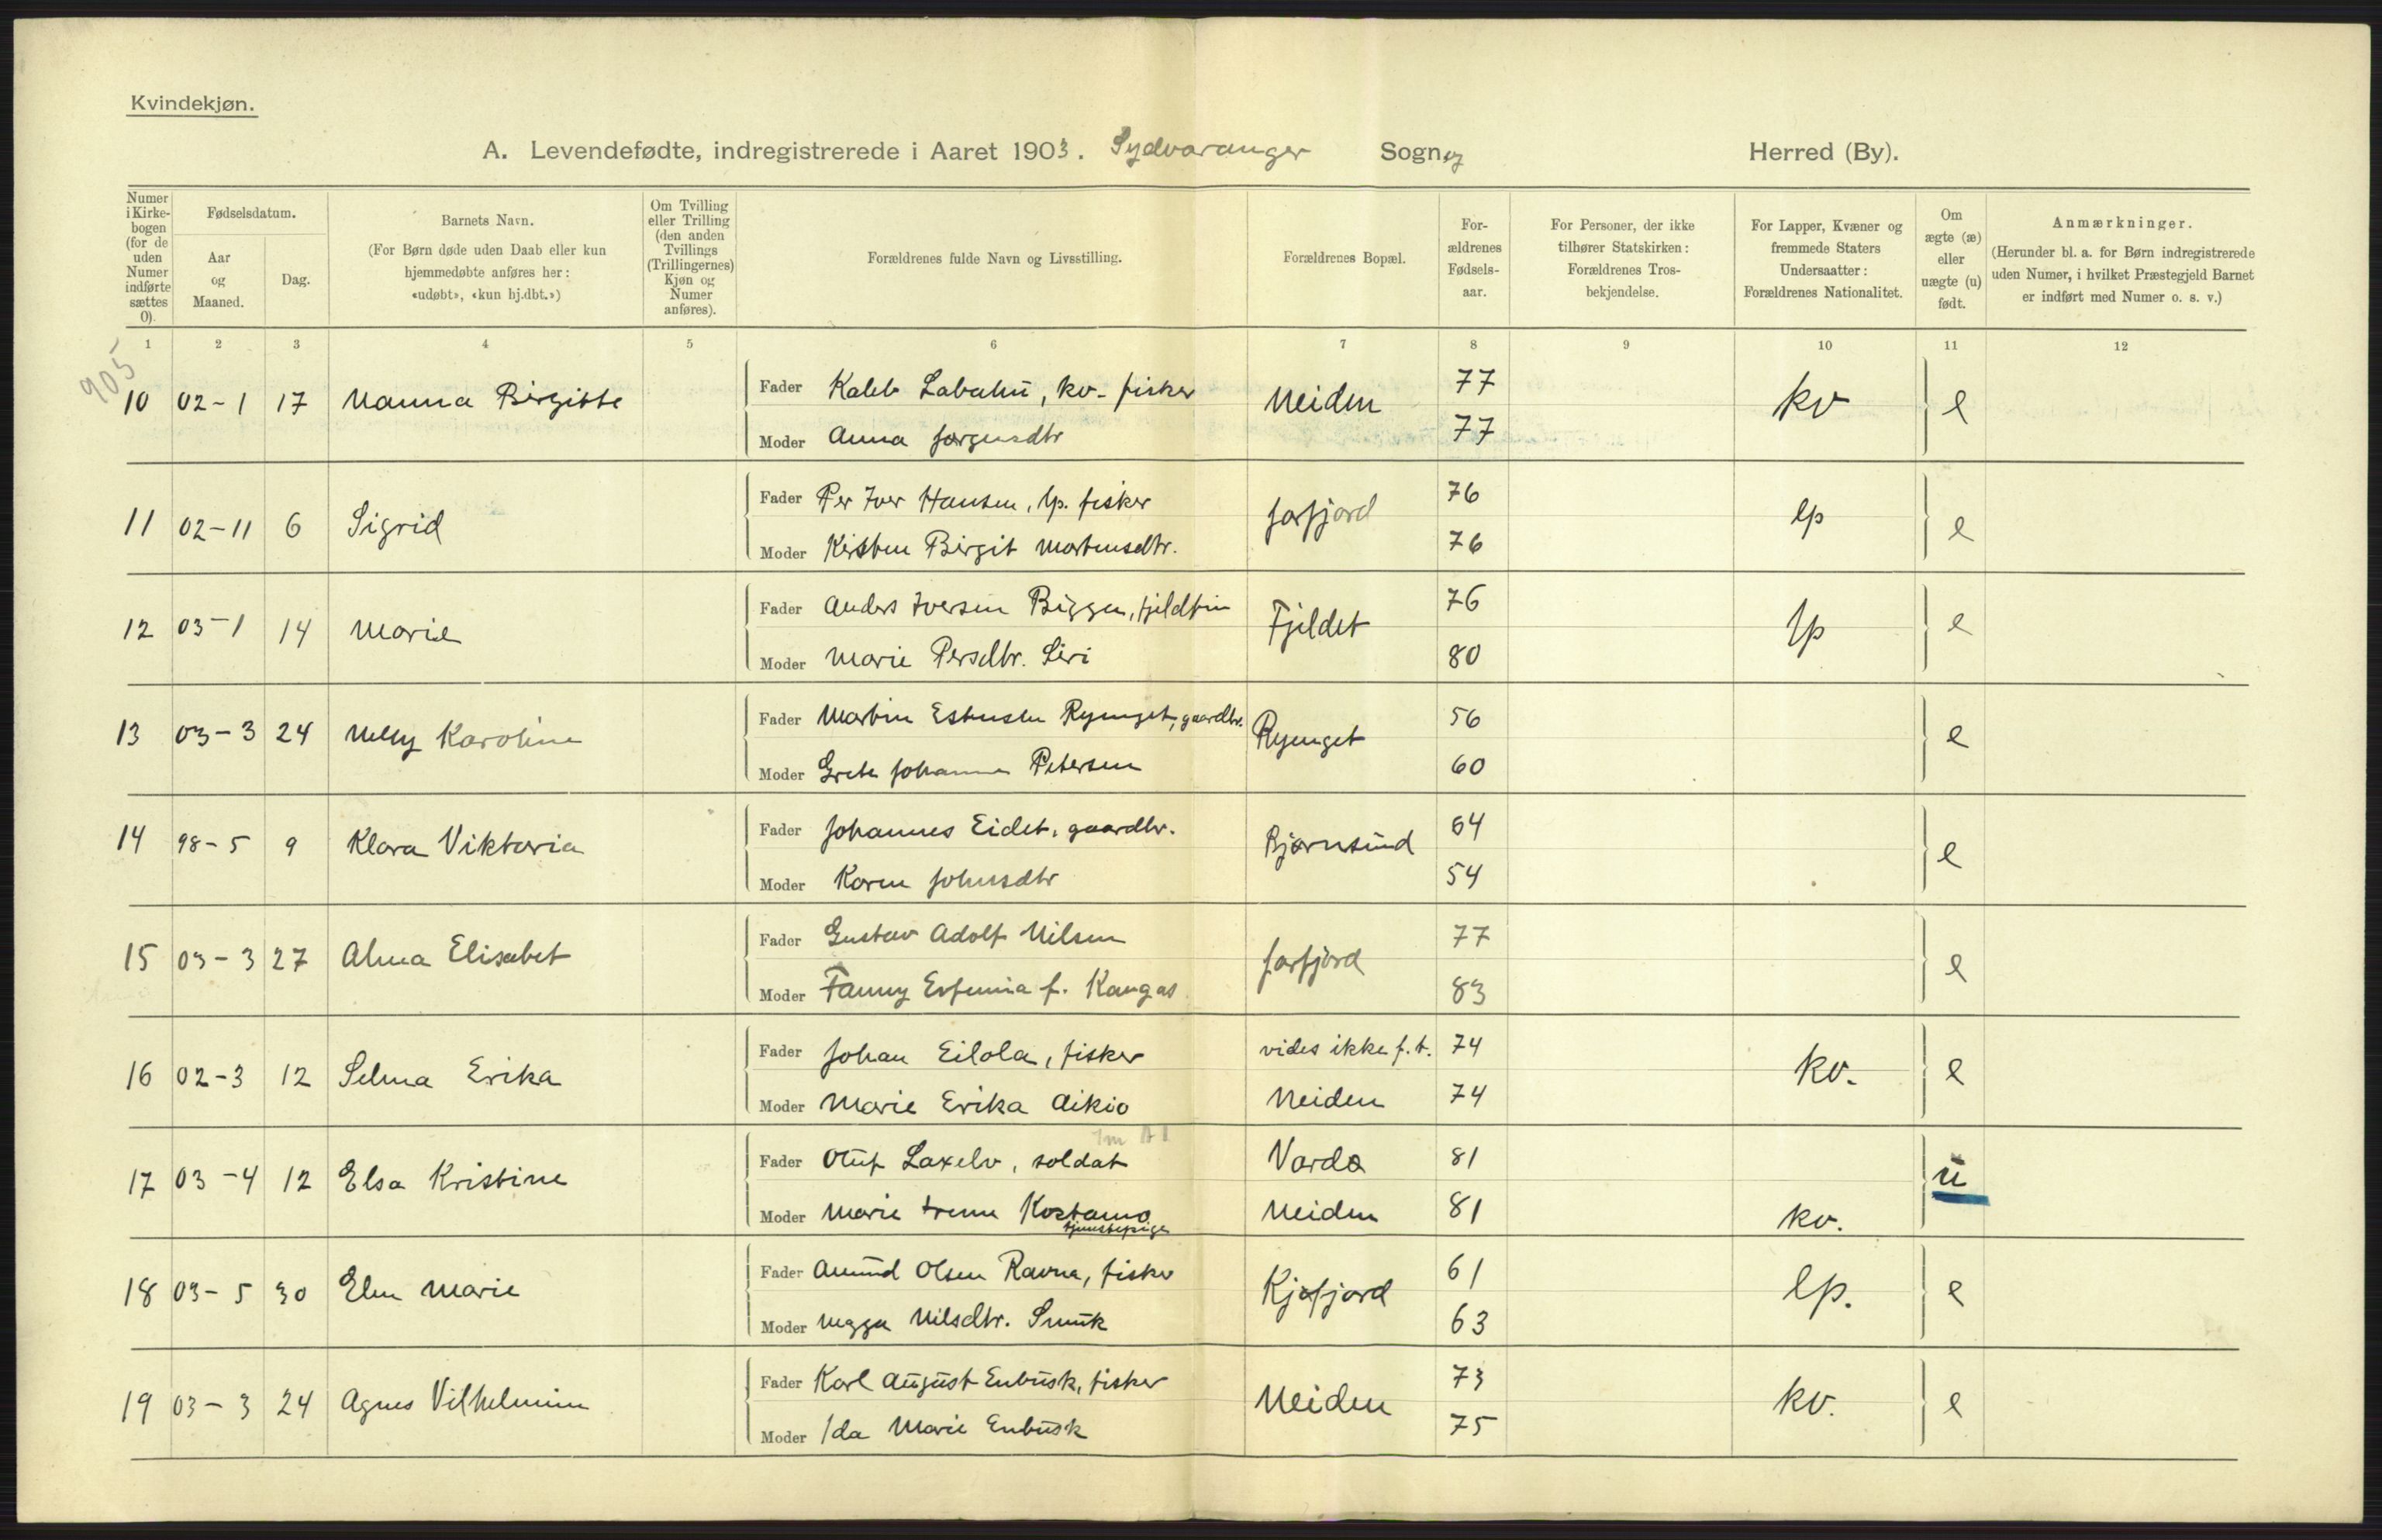 Kvindekjøn.
A. Levendefødte, indregistrerede i Aaret 1903. Sydvaranger Sogn og Herred (By).
Numer i Kirke-bogen (for de uden Numer indførte sættes 0).
Fødselsdatum.
Aar og Maaned.
Dag.
Barnets Navn.
(For Børn døde uden Daab eller kun hjemmedøbte anføres her: «udøbt», «kun hj.dbt.»)
Om Tvilling eller Trilling (den anden Tvillings (Trillingernes) Kjøn og Numer anføres).
Forældrenes fulde Navn og Livsstilling.
Forældrenes Bopæl.
For-ældrenes Fødsels-aar.
For Personer, der ikke tilhører Statskirken: Forældrenes Tros-bekjendelse.
For Lapper, Kvæner og fremmede Staters Undersaatter: Forældrenes Nationalitet.
Om ægte (æ) eller uægte (u) født.
Anmærkninger.
(Herunder bl. a. for Børn indregistrerede uden Numer, i hvilket Præstegjeld Barnet er indført med Numer o. s. v.)
1 2 3 4 5 6 7 8 9 10 11 12
905
10 02-1 17 Nanna Birgitte Fader Kaleb Labahü, kv. fisker Neiden 77 kv e
Moder Anna Jørgensdtr 77
11 02-11 6 Sigrid Fader Per Iver Hansen, lp. fisker Jarfjord 76 lp e
Moder Kirsten Birgit Mortensdtr. 76
12 03-1 14 Marie Fader Anders Iversen Bigga, fjeldfin Fjeldet 76 lp e
Moder Marie Persdtr. Siri 80
13 03-3 24 Nelly Karoline Fader Martin Estensen Ryenget, gaardbr. Ryenget 56 e
Moder Grete Johanne Petersen 60
14 98-5 9 Klara Viktoria Fader Johannes Eidet, gaardbr. Bjørnsund 64 e
Moder Karen Johnsdtr 54
15 03-3 27 Alma Elisabet Fader Gustav Adolf Nilsen Jarfjord 77 e
Moder Fanny Eufemia f. Kangas 83
16 02-3 12 Selma Erika Fader Johan Eilola, fisker vides ikke f. t. 74 kv. e
Moder Marie Erika Aikio Neiden 74
17 03-4 12 Elsa Kristine Fader Oluf Laxelv, soldat Vardø 81 u
Moder Marie Irene Kostamo Neiden 81 kv.
tjenestepige
18 03-5 30 Elen Marie Fader Amund Olsen Ravna, fisker Kjøfjord 61 lp. e
Moder Negga Nilsdtr. Smuk 63
19 03-3 24 Agnes Vilhelmine Fader Karl August Enbusk, fisker Neiden 73 kv. e
Moder Ida Marie Enbusk 75